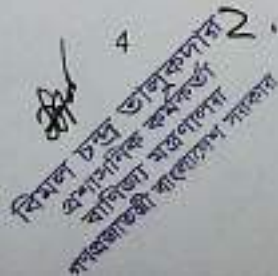 4
2.
বিমল চন্দ্র তালুকদার
প্রশাসনিক কর্মকর্তা
বাণিজ্য মন্ত্রণালয়
গণপ্রজাতন্ত্রী বাংলাদেশ সরকার